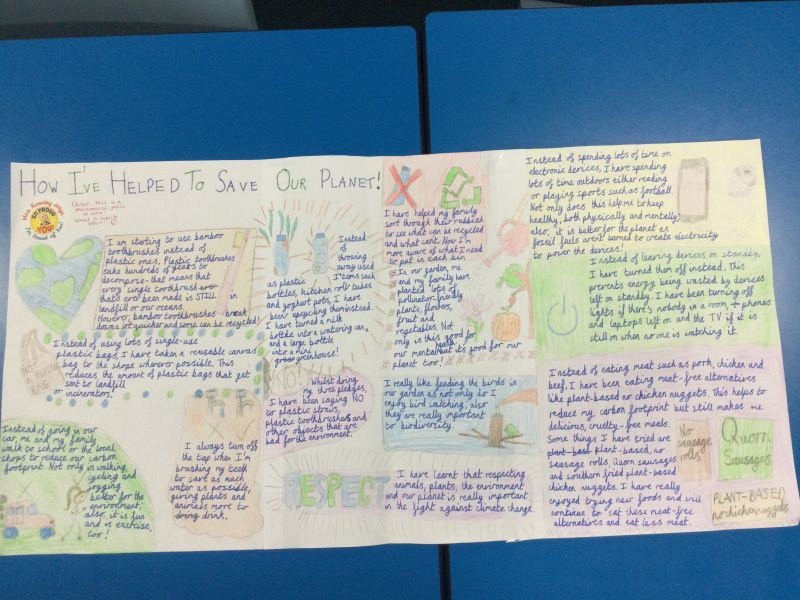 HOW I'VE HELPED TO SAVE OUR PLANET!
SO PROUD
of YOU!
I am starting to use bamboo
toothbrushes instead of
plastic ones. Plastic toothbrushes
take hundreds of years to
decompose - that means that
every single toothbrush ever
that's ever been made is STILL in
landfill or our oceans
However, bamboo toothbrushes break
down a lot quicker and some can be recycled!
Instead of using lots of single-use
plastic bags, I have taken a reusable canvas
bag to the shops wherever possible. This
reduces the amount of plastic bags that get
sent to landfill
or incinerators!
BAG
Instead of going in our
car, me and my family
walk to school or the local
shops to reduce our carbon
footprint. Not only is walking,
cycling and
jogging
better for the
environment,
also, it is fun
and is exercise,
too!
I always turn off
the tap when I'm
brushing my teeth
to save as much
water as possible,
giving plants and
animals more to
drink.
Instead
of
throwing
away used
items such
as plastic
bottles, kitchen roll tubes
and yoghurt pots, I have
been upcycling them instead.
I have turned a milk
bottle into a watering can,
and a large bottle
into a mini
greenhouse!
NO!
Whilst doing
my three pledges,
I have been saying NO
to plastic straws,
plastic toothbrushes and
other objects that are
bad for the environment.
RESPECT
I have learnt that respecting
animals, plants, the environment
and our planet is really important
in the fight against climate change.
I have helped my family
sort through their rubbish
to see what can be recycled
and what can't. Now I'm
more aware of what I need
to put in each bin.
In our garden me
and my family have
planted lots of
pollinator-friendly
plants, flowers,
fruit and
vegetables. Not
only is this good for
our mental health but it's good for our
planet too!
I really like feeding the birds in
our garden as not only do I
enjoy bird watching, also
they are really important
to biodiversity.
Instead of spending lots of time on
electronic devices, I have spending
lots of time outdoors either reading
or playing sports such as football.
Not only does this help me to keep
healthy, both physically and mentally,
also, it is better for the planet as
fossil fuels aren't burned to create electricity
to power the devices!
Instead of leaving devices on standby,
I have turned them off instead. This
prevents energy being wasted by devices
left on standby. I have been turning off
lights if there's nobody in a room + phones
and laptops left on and the TV if it is
still on when no one is watching it.
Instead of eating meat such as pork, chicken and
beef, I have been eating meat-free alternatives
like plant-based no chicken nuggets. This helps to
reduce my carbon footprint but still makes me
delicious, cruelty-free meals.
Some things I have tried are
plant-based, no
sausage rolls, Quorn sausages
and southern fried plant-based
chicken nuggets. I have really
enjoyed trying new foods and will
continue to eat these meat-free
alternatives and eat less meat.
No
sausage
rolls
Quorn
Sausages
PLANT-BASED
no chicken nuggets